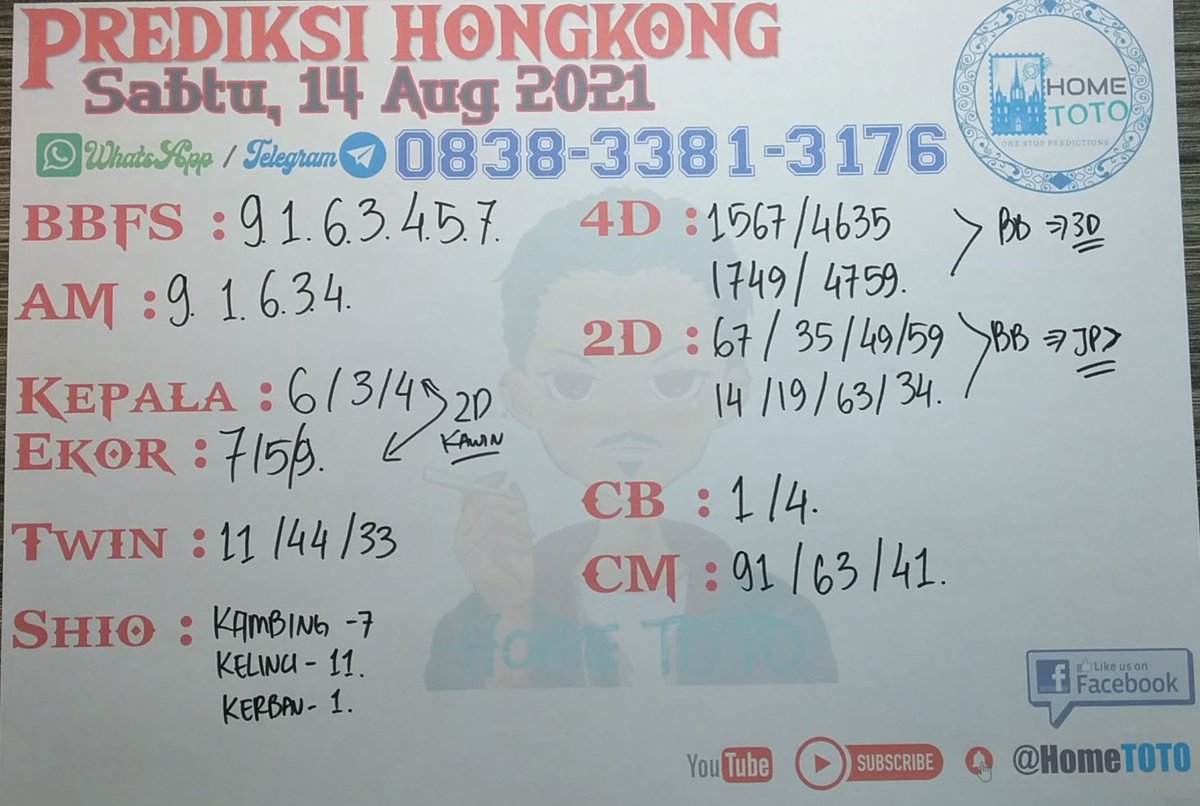 PREDIKSI HONGKONG
Sabtu, 14 Aug 2021
WhatsApp / Telegram 0838-3381-3176
HOME
TOTO
ONE STOP PREDICTIONS
BBFS : 9. 1. 6. 3. 4. 5. 7.
AM : 9. 1. 6. 3. 4.
KEPALA : 6 / 3 / 4
2D
KAWIN
EKOR : 7 / 5 / 9.
TWIN : 11 / 44 / 33
SHIO : KAMBING - 7
KELINCI - 11.
KERBAU - 1.
4D : 1567 / 4635
1749 / 4759.
BB ⇒ 3D
2D : 67 / 35 / 49 / 59
14 / 19 / 63 / 34.
BB ⇒ JP>
CB : 1 / 4.
CM : 91 / 63 / 41.
HOME TOTO
Like us on
Facebook
YouTube SUBSCRIBE @HomeTOTO